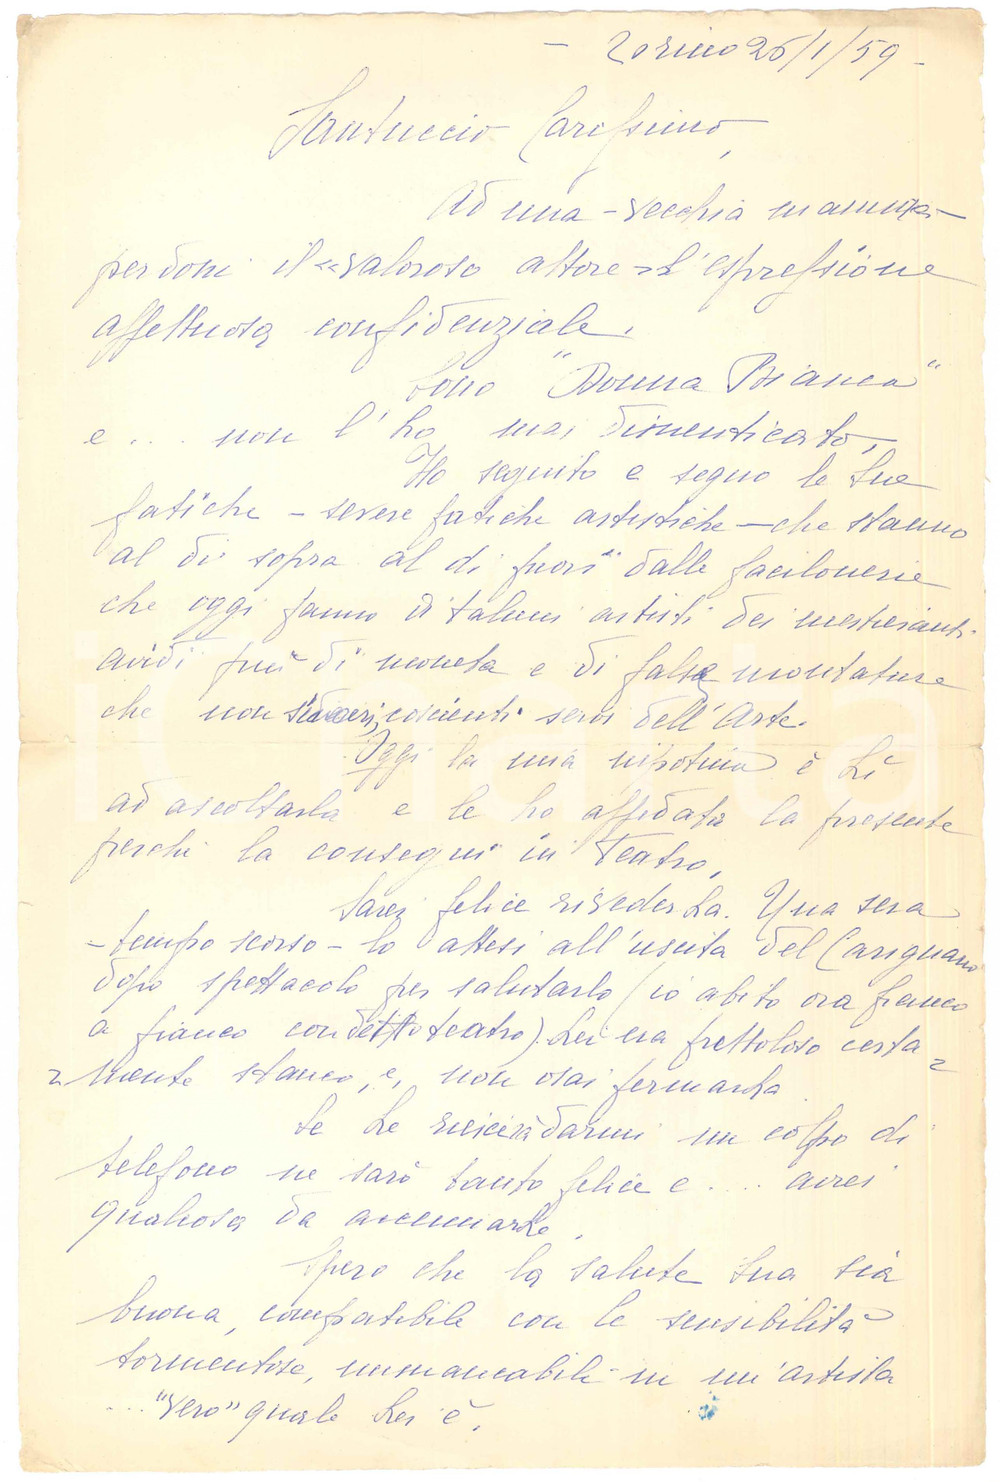 - Torino 26/1/59 -
Santuccio Carissimo,
Ad una - vecchia mamma -
perdoni il «valoroso attore» l'espressione
affettuosa confidenziale.
Sono "Donna Bianca"
e ... non l'ho mai dimenticato,
Ho seguito e seguo le Sue
fatiche - severe fatiche artistiche - che stanno
al di sopra al di fuori dalle facilonerie
che oggi fanno di taluni artisti dei mestieranti
avidi più di moneta e di false montature
che non coscienti servi dell'Arte.
Oggi la mia nipotina è Lì
ad ascoltarla e le ho affidata la presente
perchè la consegni in Teatro.
Sarei felice rivederLa. Una sera
- tempo scorso - lo attesi all'uscita del Carignano
dopo spettacolo per salutarlo (io abito ora fianco
a fianco con detto teatro). Lei era frettoloso certa=
=mente stanco, e, non osai fermarLa.
Se Le riuscirà darmi un colpo di
telefono ne sarò tanto felice e .... avrei
qualcosa da accennarLe.
Spero che la salute Sua sia
buona, compatibile con le sensibilità
tormentose, immancabili in un'artista
... "vero" quale Lei è.